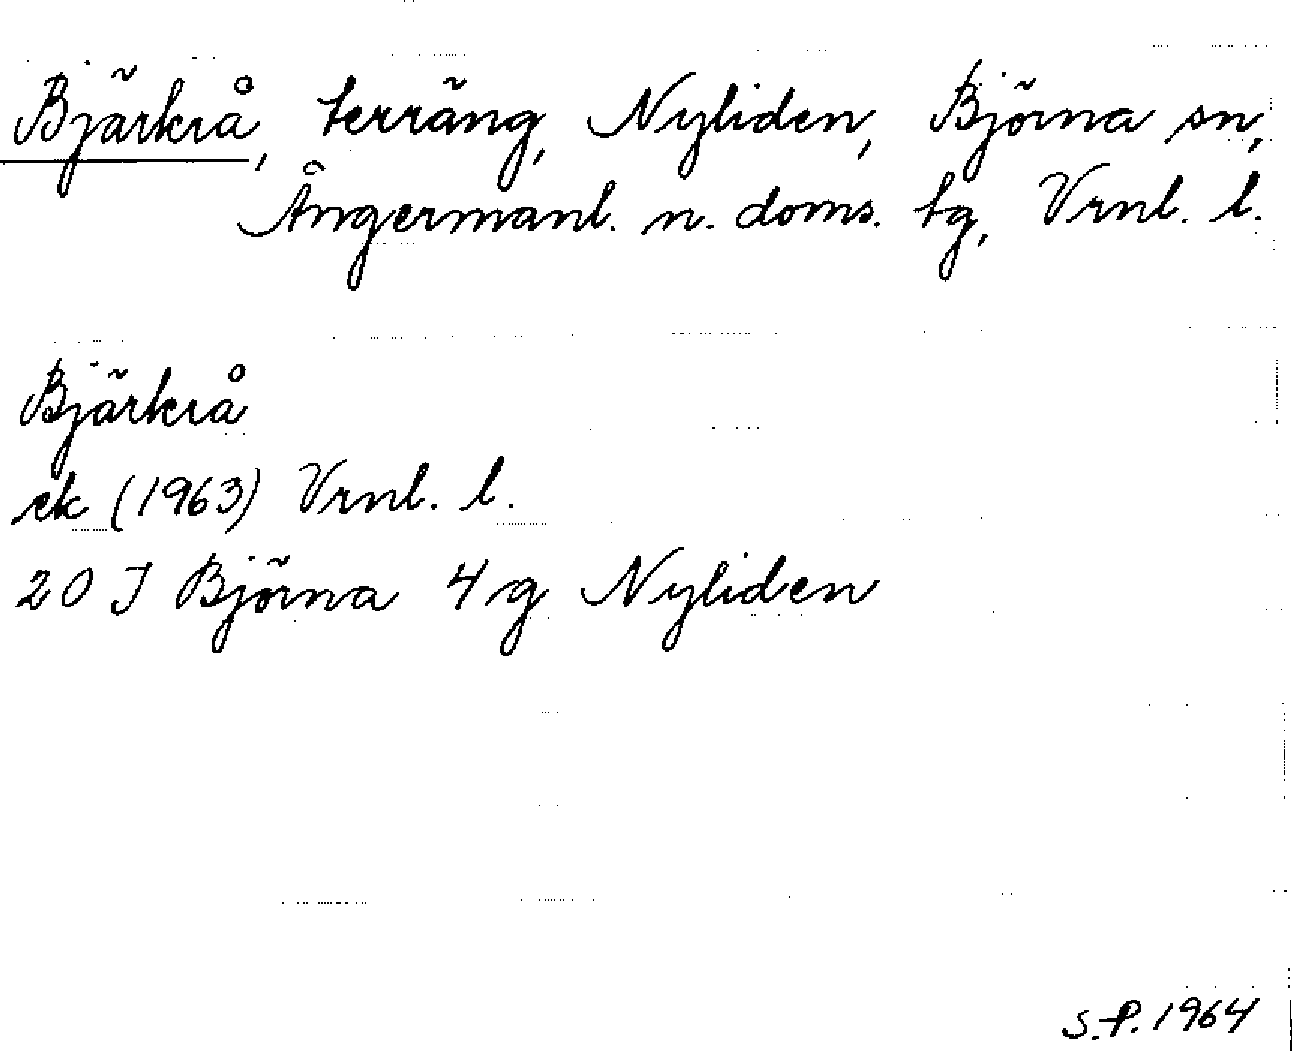 Bjärkrå, terräng, Nyliden, Björna sn,
Ångermanl. n. doms. tg, Vrnl. l.
Bjärkrå
ek (1963) Vrnl. l.
20 J Björna 4g Nyliden
S.P. 1964